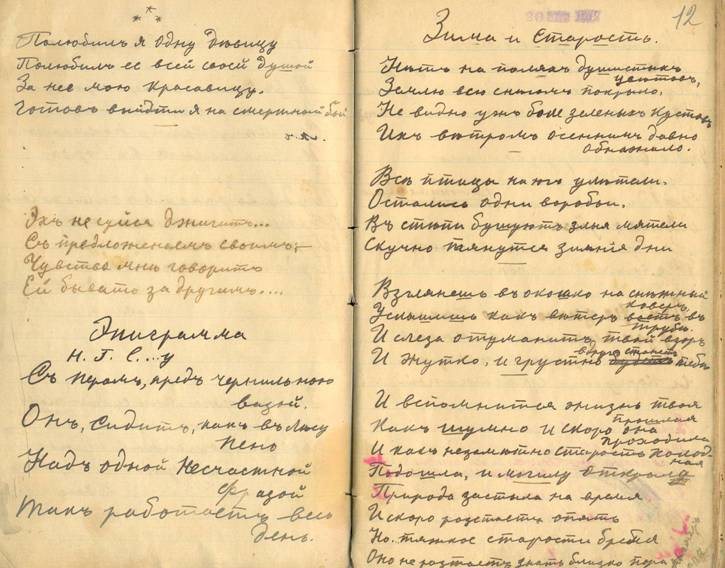 Полюбилъ я одну дѣвицу
Полюбилъ ее всей своей душой
За нее мою красавицу.
Готовъ выйдти я на смертный бой
Эхъ не суйся джигитъ...
Съ предложеніемъ своимъ,
Чувство мнѣ говоритъ
Ей бывать за другимъ....
Эпиграмма
Н. Г. С...у
Съ перомъ, предъ чернильною
вазой.
Онъ, сидитъ, какъ въ лѣсу
пень
Надъ одной несчастной
фразой
Такъ работаетъ весь
день.
12
Зима и Старость.
Нѣтъ на поляхъ душистыхъ
цвѣтовъ,
Землю всю снѣгомъ покрыло.
Не видно ужъ боле зеленыхъ кустовъ
Ихъ вѣтромъ осеннимъ давно
обнажило.
Всѣ птицы на югъ улѣтели.
Остались одни воробьи.
Въ степи бушуютъ злыя мятели
Скучно тянутся зимнія дни
Взглянешь въ окошко на снѣжный
коверъ
Услышишь какъ вѣтеръ воетъ въ
трубѣ.
И слеза отуманитъ твой взоръ
И жутко, и грустно вдругъ станетъ тебѣ
И вспомнится жизнь твоя
прошлая
Какъ шумно и скоро она
проходила
И какъ незамѣтно старость холод-
ная
Подошла, и могилу открыла
Природа застыла на время
И скоро растаетъ опять
Но тяжкое старости бремя
Оно не растаетъ, знать близко пора